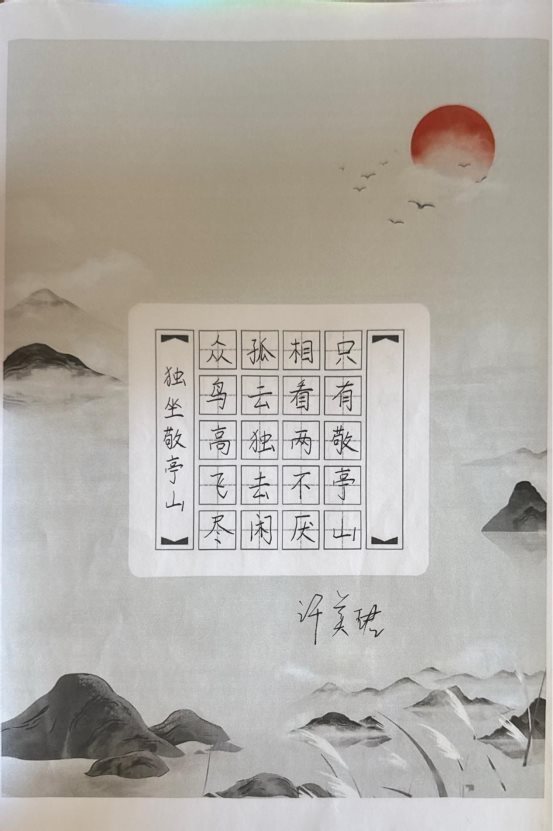 独坐敬亭山
众鸟高飞尽
孤云独去闲
相看两不厌
只有敬亭山
许美珺